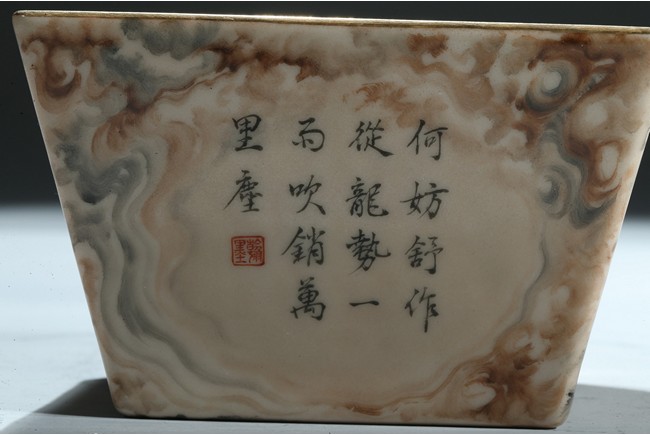 何妨舒作
從龍勢一
雨吹銷萬
里塵